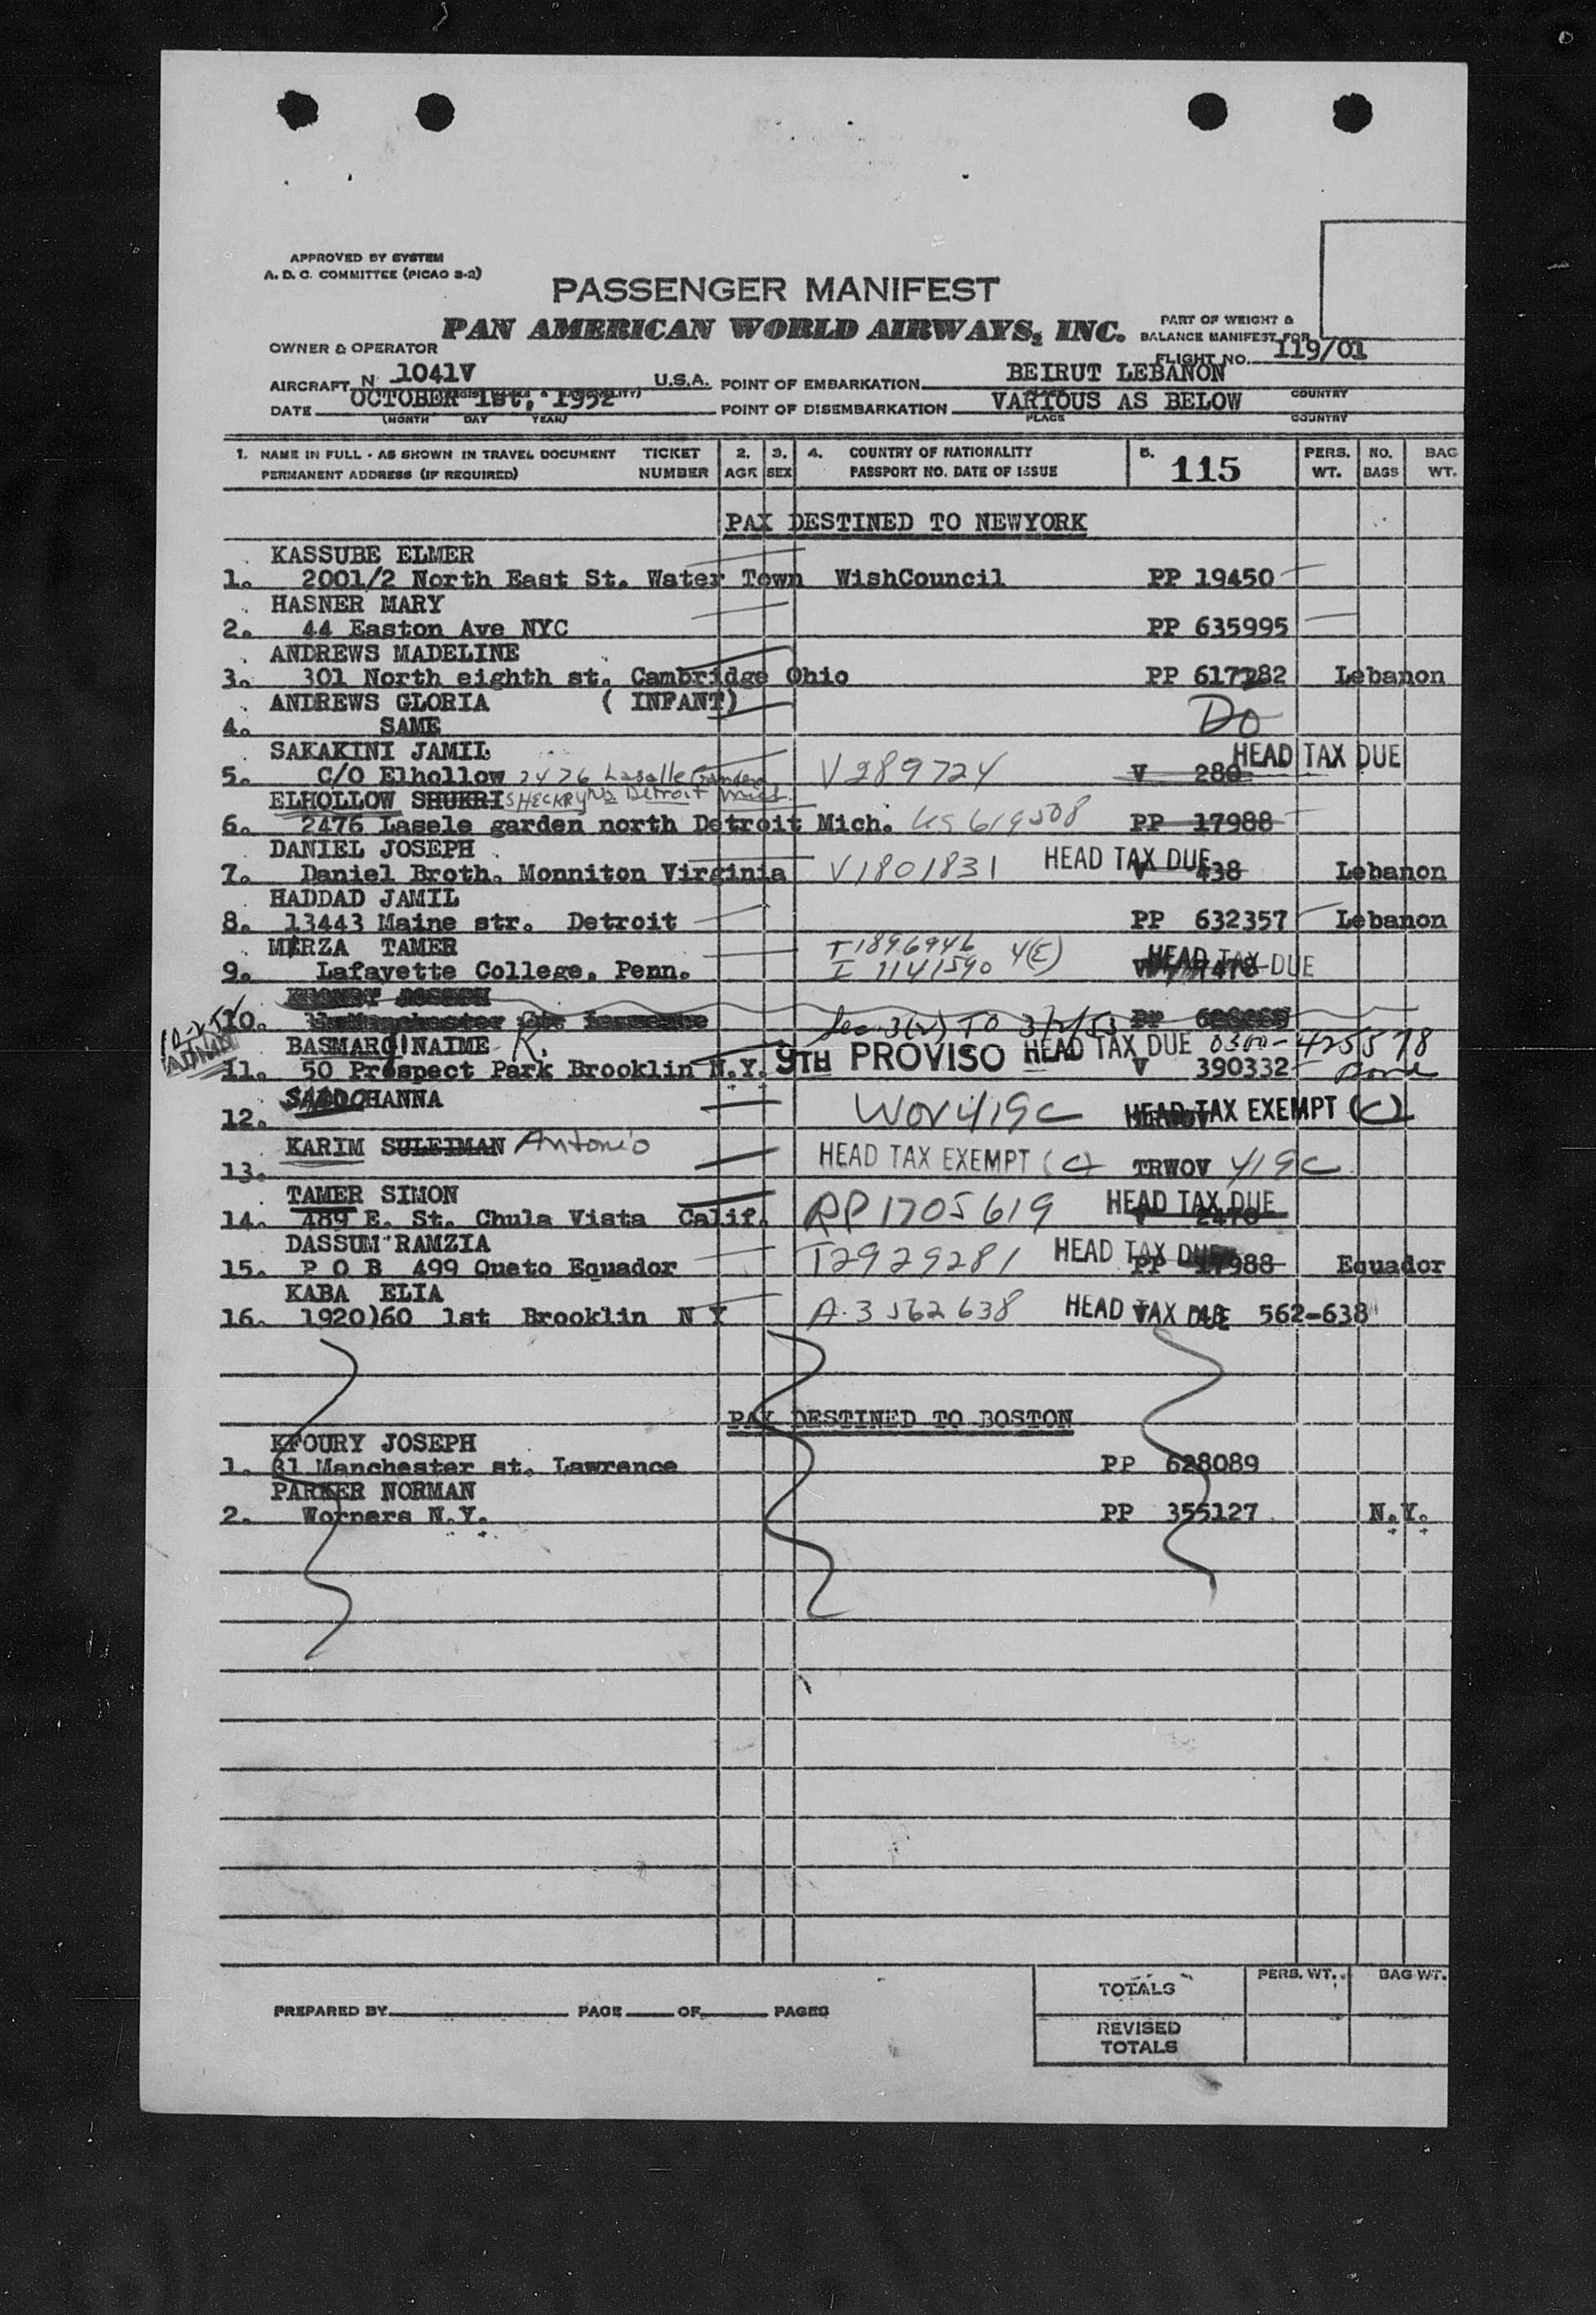 APPROVED BY SYSTEM
A. D. C. COMMITTEE (PICAO 3-2)
PASSENGER MANIFEST
PAN AMERICAN WORLD AIRWAYS, INC.
PART OF WEIGHT &
BALANCE MANIFEST FOR
FLIGHT NO. 119/01
OWNER & OPERATOR
AIRCRAFT N 1041V U.S.A. POINT OF EMBARKATION BEIRUT LEBANON
COUNTRY
DATE OCTOBER 1st, 1952 POINT OF DISEMBARKATION VARIOUS AS BELOW
(MONTH DAY YEAR) PLACE COUNTRY
1. NAME IN FULL - AS SHOWN IN TRAVEL DOCUMENT TICKET 2. 3. 4. COUNTRY OF NATIONALITY 5. 115 PERS. NO. BAG
PERMANENT ADDRESS (IF REQUIRED) NUMBER AGE SEX PASSPORT NO. DATE OF ISSUE WT. BAGS WT.
PAX DESTINED TO NEWYORK
KASSUBE ELMER
1. 2001/2 North East St. Water Town WishCouncil PP 19450
HASNER MARY
2. 44 Easton Ave NYC PP 635995
ANDREWS MADELINE
3. 301 North eighth st. Cambridge Ohio PP 617282 Lebanon
ANDREWS GLORIA ( INFANT)
4. SAME Do
SAKAKINI JAMIL HEAD TAX DUE
5. C/O Elhollow 2476 Lasalle Garden V289724 V 280
ELHOLLOW SHUKRI SHECKRY No Detroit Mich.
6. 2476 Lasele garden north Detroit Mich. US 619508 PP 17988
DANIEL JOSEPH
7. Daniel Broth. Monniton Virginia V1801831 HEAD TAX DUE V 438 Lebanon
HADDAD JAMIL
8. 13443 Maine str. Detroit PP 632357 Lebanon
MIRZA TAMER T1896946
9. Lafayette College, Penn. I 1141590 4(E) HEAD TAX DUE
10. Sec 3(2) TO 3/2/53 PP
BASMARGI NAIME K. 9TH PROVISO HEAD TAX DUE 0300-425578
11. 50 Prospect Park Brooklin N.Y. V 390332
ADMD
HANNA
12. WOV 419C HEAD TAX EXEMPT (C)
KARIM SULEIMAN Antonio
13. HEAD TAX EXEMPT (C) TRWOV 419C
TAMER SIMON
14. 489 E. St. Chula Vista Calif. RP1705619 HEAD TAX DUE V 2470
DASSUM RAMZIA
15. P O B 499 Queto Equador T2929281 HEAD TAX DUE PP 17988 Equador
KABA ELIA
16. 1920)60 1st Brooklin N Y A-3562638 HEAD TAX DUE 562-638
PAX DESTINED TO BOSTON
KFOURY JOSEPH
1. 31 Manchester st. Lawrence PP 628089
PARKER NORMAN
2. Worners N.Y. PP 355127 N.Y.
PERS. WT. BAG WT.
TOTALS
PREPARED BY PAGE OF PAGES
REVISED
TOTALS